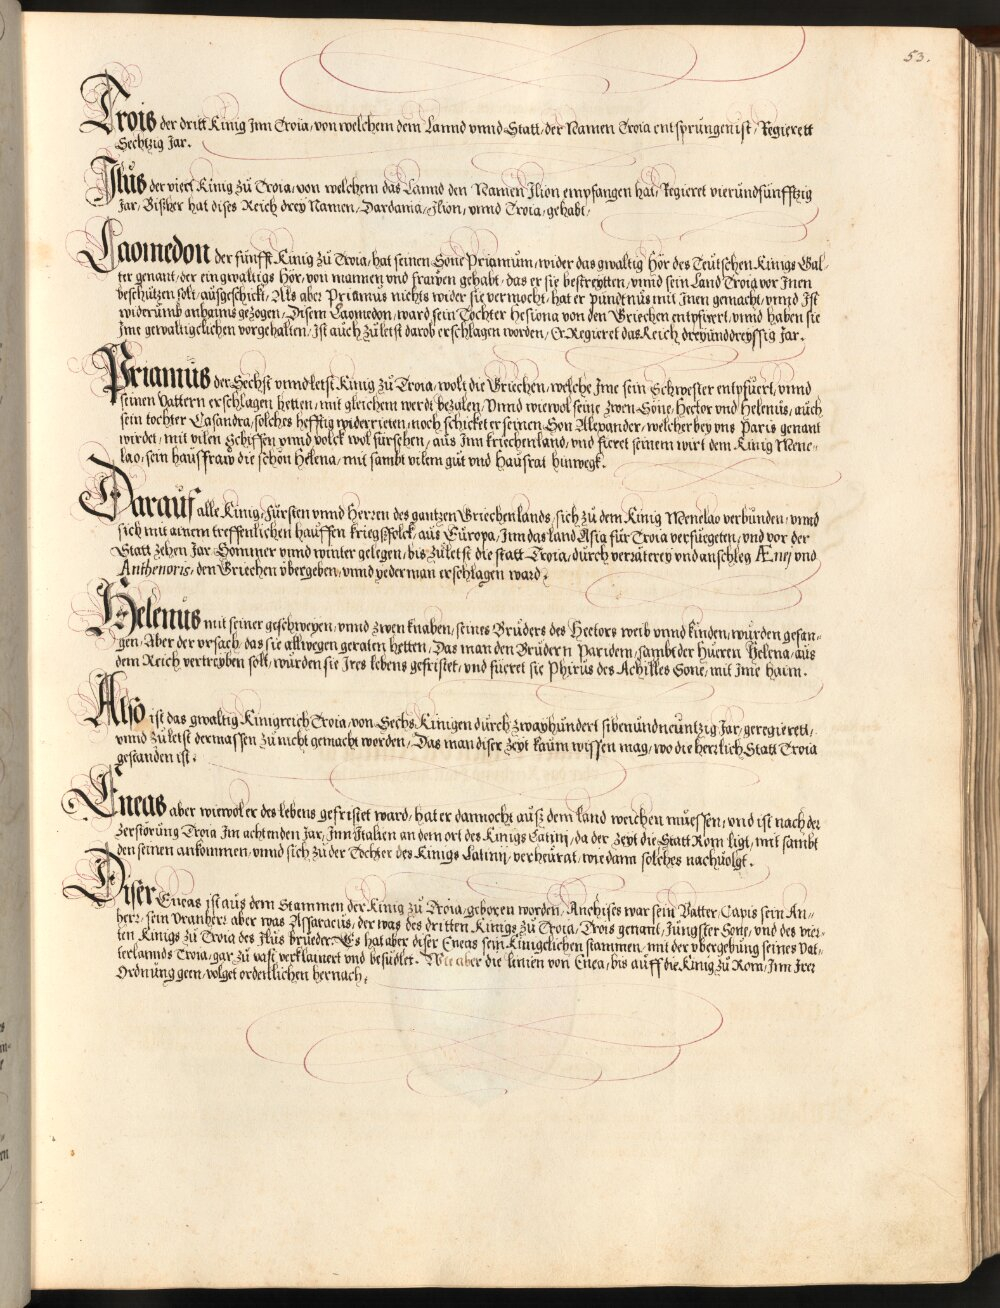 53.
Trois der dritt Künig Jnn Troia, von welchem dem Lannd vnnd Statt, der Namen Troia entsprungen ist, Regierett
Sechtzig Jar.
Jlus der viert Künig zu Troia, von welchem das Lannd den Namen Jlion empfangen hat, Regieret vierundfünfftzig
Jar, Bißher hat dises Reich drey Namen, Dardania, Jlion, vnnd Troia, gehabt,
Laomedon der fünfft Künig zu Troia, hat seinen Sone Priamum, wider das gwaltig Hör des Teutschen Künigs Bal-
ter genant, der ein gwaltigs Hör, von mannen vnd frawen gehabt, das er sie bestreytten, vnnd sein Land Troia vor Jnen
beschützen solt, außgeschickt, Als aber Priamus nichts wider sie vermocht, hat er pündtnus mit Jnen gemacht, vnnd Jst
widerumb anhaims gezogen, Disem Laomedon, ward sein Tochter Hesiona von den Griechen entpfiert, vnnd haben sie
Jme gewaltigclichen vorgehalten, Jst auch zuletst darob erschlagen worden, Er Regieret das Reich dreyunddreyssig Jar.
Priamus der Sechst vnnd letst Künig zu Troia, wolt die Griechen, welche Jme sein Schwester entpfüert, vnnd
seinen Vattern erschlagen hetten, mit gleichem werdt bezalen, Vnnd wiewol seine zwen Söne, Hector vnd Helenus, auch
sein tochter Casandra, solches hefftig widerrieten, noch schicket er seinen Son Alexander, welcher bey vns Paris genant
wirdet, mit vilen Schiffen vnnd volck wol fürsehen, aus Jnn kriechenland, vnd fieret seinem wirt dem Künig Mene-
lao, sein haussfraw die schön Helena, mit sambt vilem gut vnd Haußrat hinwegk.
Darauf alle Künig, Fürsten vnnd Herzen des gantzen Griechenlands, sich zu dem Künig Menelao verbunden, vnnd
sich mit ainem treffenlichen hauffen kriegßfolck, aus Europa, Jnn das land Asia für Troia verfuegeten, vnd vor der
Statt zehen Jar, Sommer vnnd winter gelegen, bis zuletst die statt Troia, durch verräterey vnd anschleg Ænej vnd
Anthenoris, den Griechen vbergeben, vnnd yederman erschlagen ward,
Helenus mit seiner geschweyen, vnnd zwen knaben, seines Bruders des Hectors weib vnnd kinden, wurden gefan-
gen, Aber der vrsach, das sie allwegen geraten hetten, Das man den Brudern Paridem, sambt der Hueren Helena, aus
dem Reich vertreyben solt, wurden sie Jres lebens gefristet, vnd füeret sie Phirus des Achilles Sone, mit Jme haim.
Also ist das gwaltig Künigreich Troia, von Sechs Künigen durch zwayhundert sibenundneuntzig Jar, geregierett,
vnnd zuletst dermassen zu nicht gemacht worden, Das man diser zeyt kaum wissen mag, wo die herrlich Statt Troia
gestanden ist,
Eneas aber wiewol er des lebens gefristet ward, hat er dannocht auß dem land weichen müessen, vnd ist nach der
Zerstörung Troia Jm achtenden Jar, Jnn Jtalien an dem ort des Künigs Latinj, da der zeyt die Statt Rom ligt, mit sambt
den seinen ankommen, vnnd sich zu der Tochter des Künigs Latinij, verheurat, wie dann solches nachuolgt.
Diser Eneas ist aus dem Stammen der Künig zu Troia, geboren worden, Anchises war sein Vatter, Capis sein An-
herr, sein Vranherr aber was Assaracus, der was des dritten Künigs zu Troia, Trois genant, Jüngster Sone, vnd des vier-
ten Künigs zu Troia des Jlus bruder, Es hat aber diser Eneas sein Künigclichen stammen, mit der vbergebung seines Vat-
terlannds Troia, gar zu vast verklainert vnd besudlet. Wie aber die linien von Enea, bis auff die Künig zu Rom, Jnn Jrer
Ordnung geen, volget ordenlichen hernach,